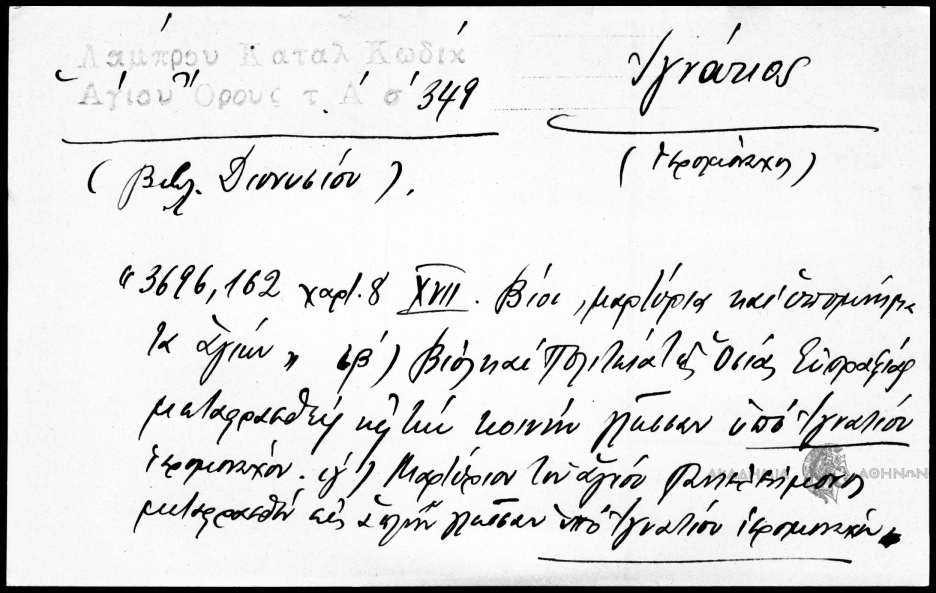 Λάμπρου Καταλ Κωδικ
Ἁγίου Ὄρους τ. Α΄ σ 349
Ἰγνάτιος
(ἱερομόναχος)
(Βιβλ. Διονυσίου).
"3696,162 χαρτ. 8 XVII. Βίοι, μαρτύρια καὶ ὑπομνήμα-
τα ἁγίων" ιβ΄) Βίος καὶ Πολιτεία τῆς Ὁσίας Εὐπραξίας
μεταφρασθεὶς εἰς τὴν κοινὴν γλῶσσαν ὑπὸ Ἰγνατίου
ἱερομονάχου. ιγ΄) Μαρτύριον τοῦ ἁγίου Παντελεήμονος
μεταφρασθὲν εἰς ἁπλῆν γλῶσσαν ὑπὸ Ἰγνατίου ἱερομονάχου"
ΑΚΑΔΗΜΙΑ ΑΘΗΝΩΝ